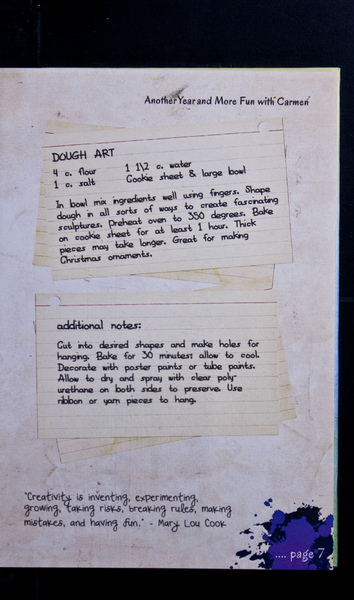 Another Year and More Fun with "Carmen"
DOUGH ART
4 c. flour 1 1\2 c. water
1 c. salt Cookie sheet & large bowl
In bowl mix ingredients well using fingers. Shape
dough in all sorts of ways to create fascinating
sculptures. Preheat oven to 350 degrees. Bake
on cookie sheet for at least 1 hour. Thick
pieces may take longer. Great for making
Christmas ornaments.
additional notes:
Cut into desired shapes and make holes for
hanging. Bake for 30 minutes; allow to cool.
Decorate with poster paints or tube paints.
Allow to dry and spray with clear poly-
urethane on both sides to preserve. Use
ribbon or yarn pieces to hang.
"Creativity is inventing, experimenting,
growing, taking risks, breaking rules, making
mistakes, and having fun." - Mary Lou Cook
.... page 7